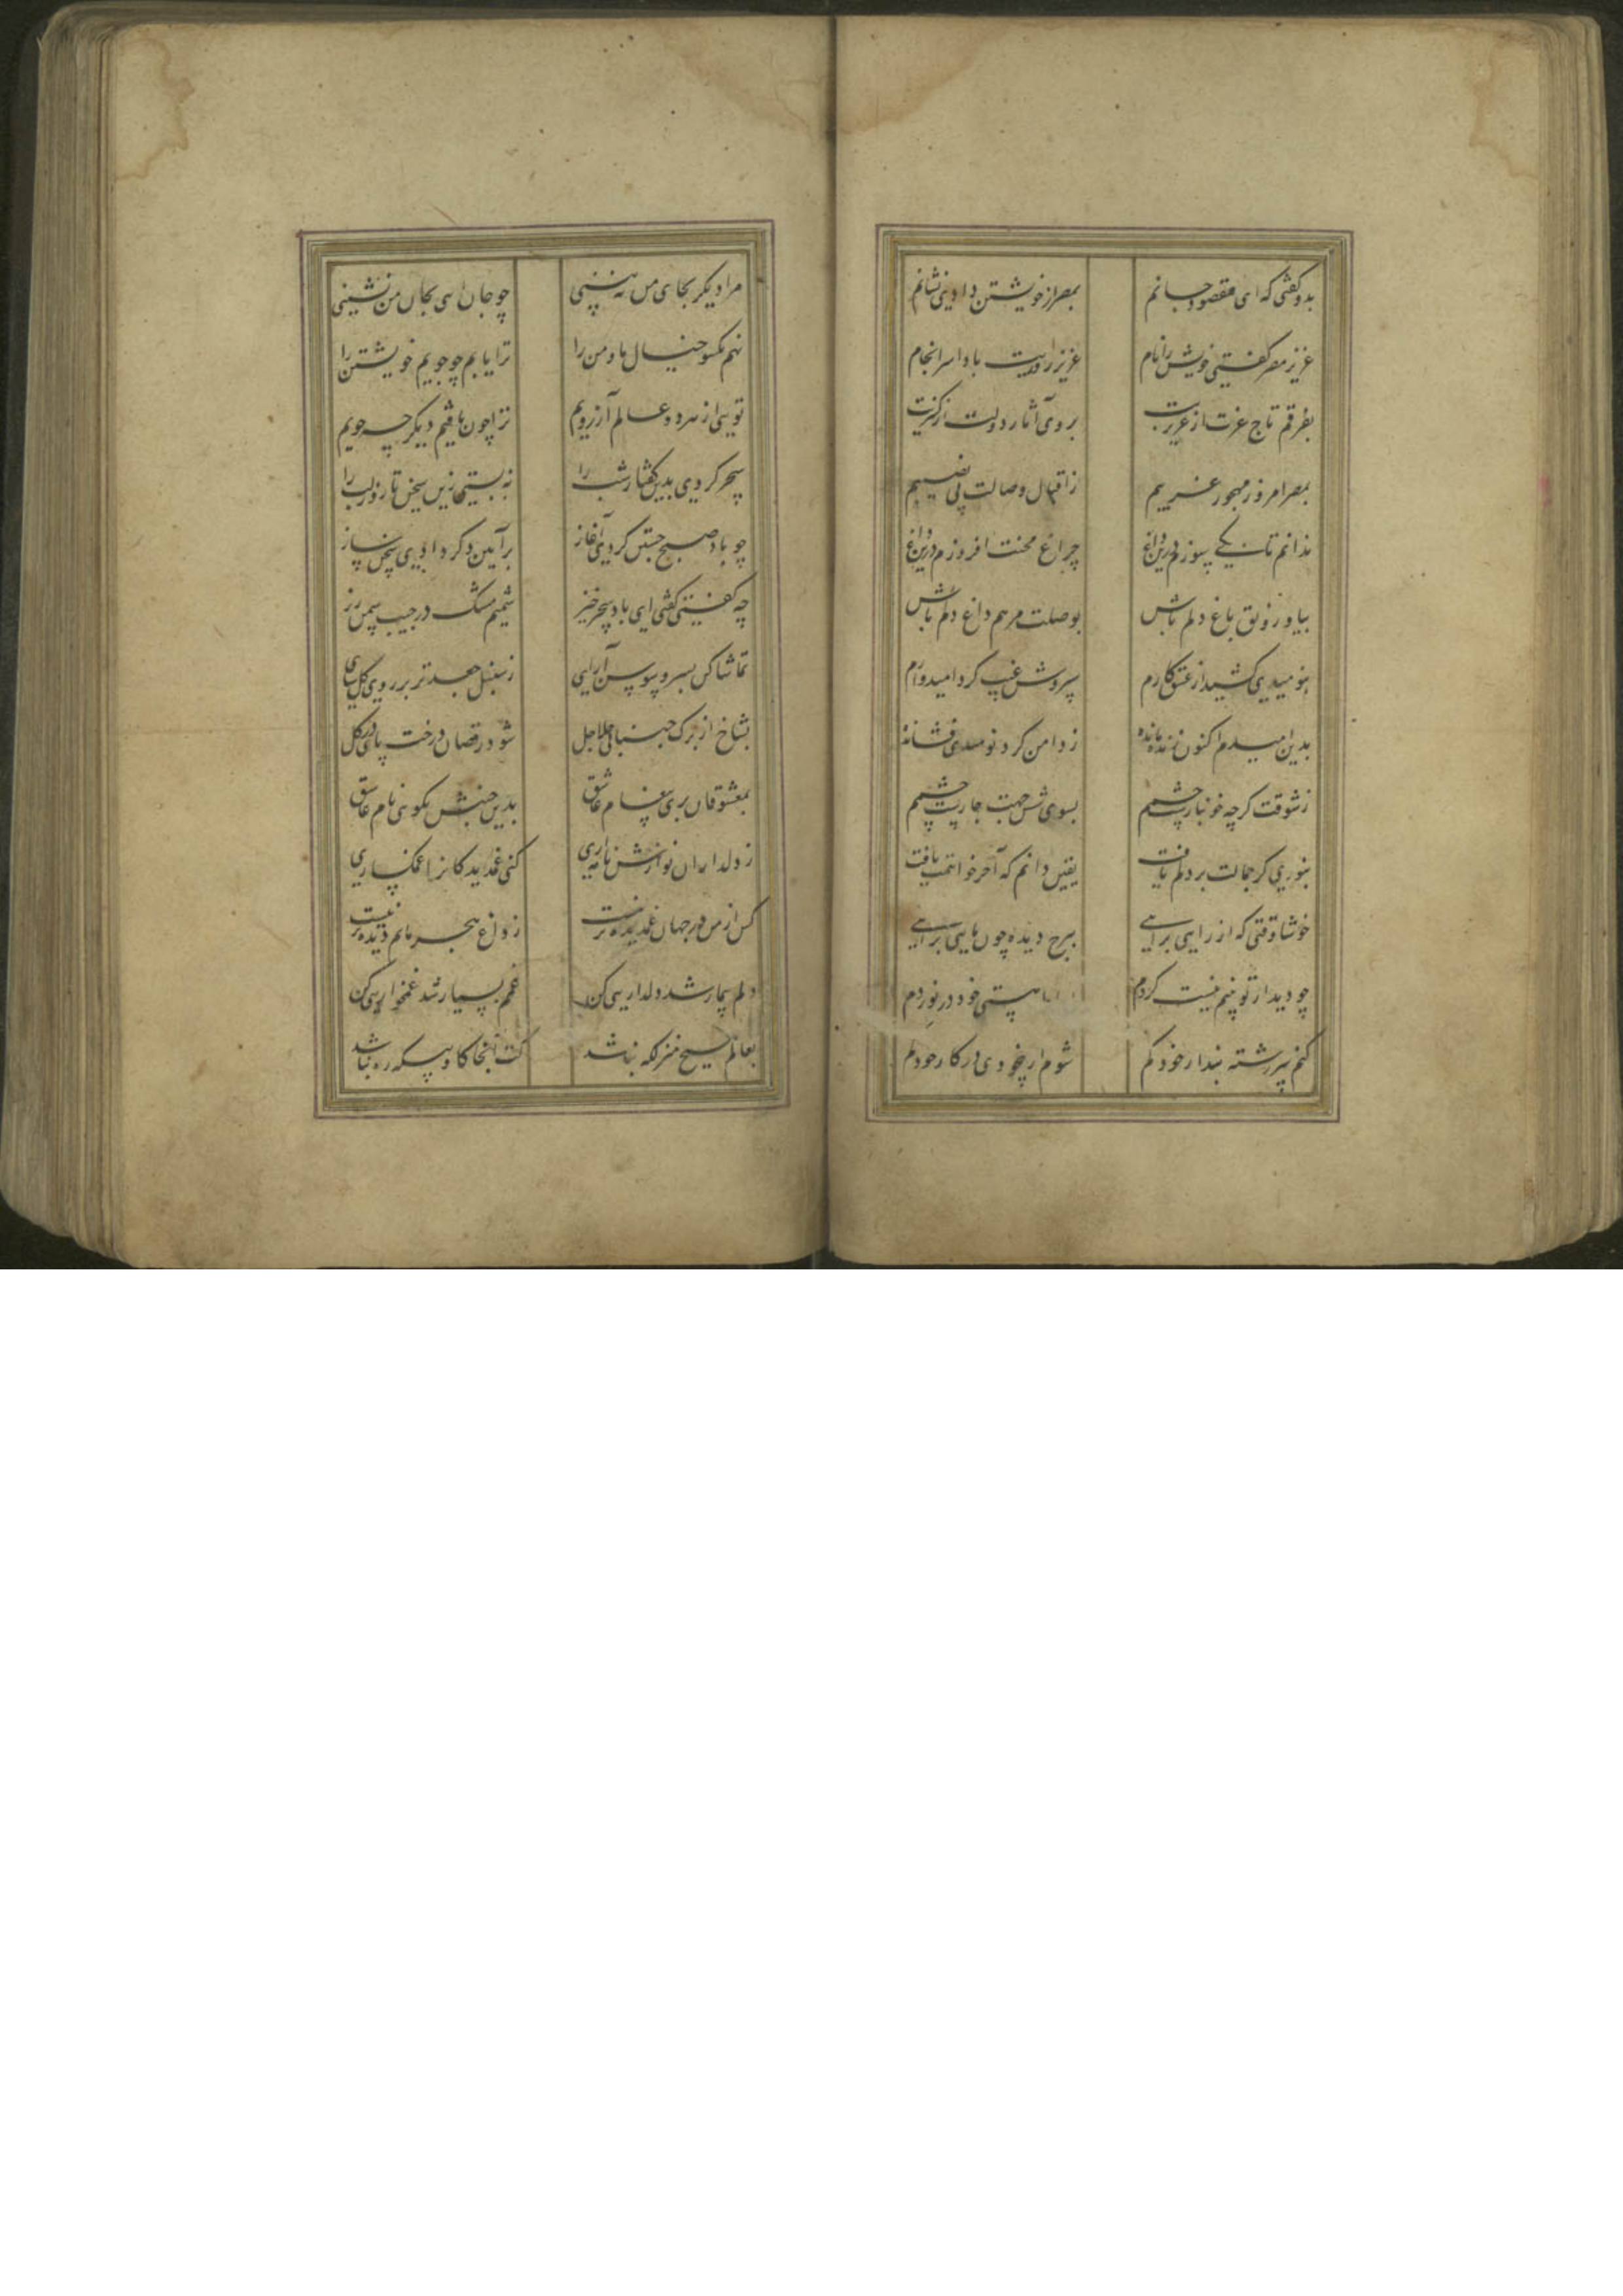 بدو گفتی که ای مقصود جانم بمصر از خویشتن دادی نشانم
عزیز مصر گفتی خویش را نام عزیز روزیت بادا سرانجام
بفرقم تاج عزت از عزیزیت بروی آثار دولت از کنیزیت
بمصر امروز مهجور غریبم ز اقبال وصالت بی نصیبم
ندانم تا بکی سوزم درین داغ چراغ محنت افروزم درین داغ
بیا و رونق باغ دلم باش بوصلت مرهم داغ دلم باش
بنومیدی کشید از عشق کارم سروش غیب کرد امیدوارم
بدین امیدم اکنون زنده مانده ز دامن گرد نومیدی فشانده
ز شوقت گرچه خونبارست چشمم بسوی شش جهت چارست چشمم
بنوری کز جمالت بر دلم تافت یقین دانم که آخر خواهمت یافت
خوشا وقتی که از راهی برآیی ببرج دیده چون ماهی برآیی
چو دیدار تو بینم نیست گردم هستی خود درنوردم
کنم سررشته پندار خود گم شوم از بیخودی در کار خود گم
مرا دیگر بجای من نه بینی چو جان آیی بجان من نشینی
نهم یکسو خیال ما و من را ترا یابم چو جویم خویشتن را
تویی از هر دو عالم آرزویم ترا چون یافتم دیگر چه جویم
سحر کردی بدین گفتار شب را نه بستی زین سخن تا روز لب را
چو باد صبح جستن کردی آغاز برآیین دگر دادی سخن ساز
چه گفتی گفتی ای باد سحرخیز شمیم مشک در جیب سمن ریز
تماشا کن بسرو و سوسن آرایی ز سنبل جعد تر بر روی گل سای
بشاخ از برگ جنبانی جلاجل شود رقصان درخت پای در گل
بمعشوقان بری پیغام عاشق بدین جنبش نکویی نام عاشق
ز دلداران نوازش نامه آری کنی غمدیدگانرا غمگساری
کس از من در جهان غمدیده تر نیست ز داغ هجر ماتم دیده تر نیست
دلم بیمار شد دلداریی کن غمم بسیار شد غمخواریی کن
بعالم هیچ منزلگه نباشد کت آنجا گاه و بیگه ره نباشد